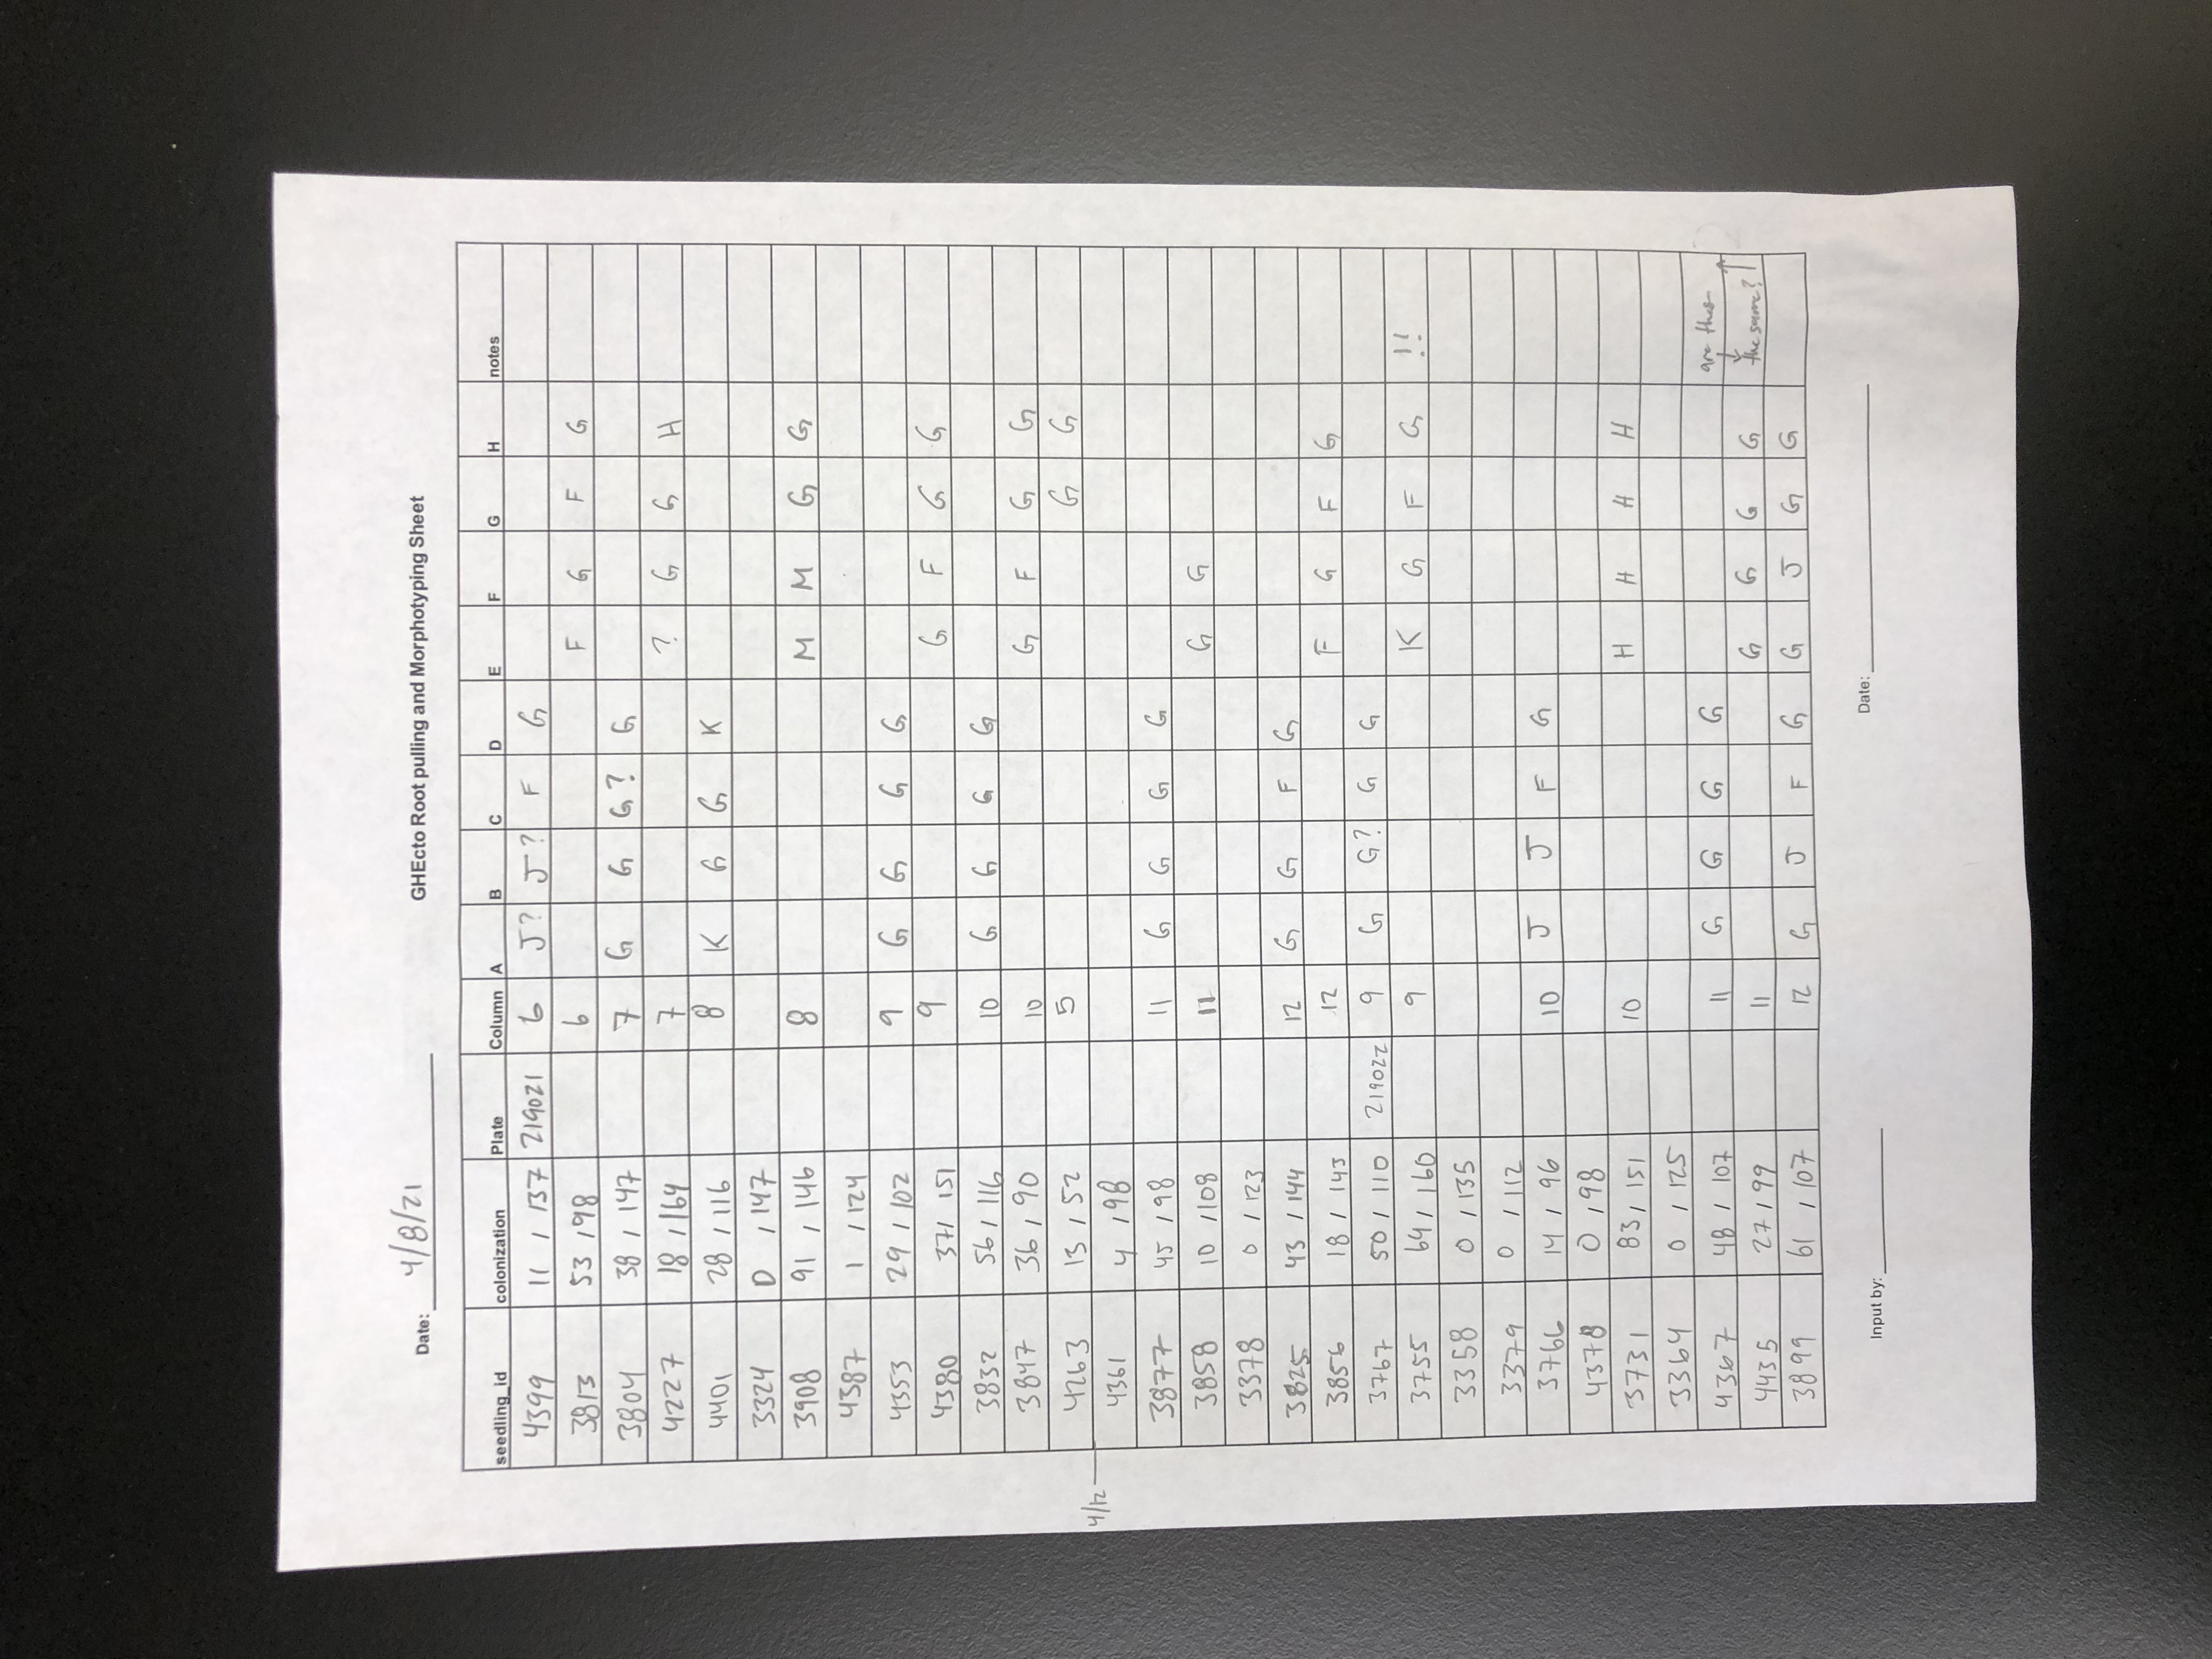 Date: 4/8/21 GHEcto Root pulling and Morphotyping Sheet
seedling_id colonization Plate Column A B C D E F G H notes
4399 11 / 137 219021 6 J? J? F G
3813 53 / 98 6 F G F G
3804 38 / 147 7 G G G? G
4227 18 / 164 7 ? G G H
4401 28 / 116 8 K G G K
3324 0 / 147
3908 91 / 146 8 M M G G
4387 1 / 124
4353 29 / 102 9 G G G G
4380 37 / 151 9 G F G G
3832 56 / 116 10 G G G G
3847 36 / 90 10 G F G G
4263 13 / 52 5 G G
4/12
4361 4 / 98
3877 45 / 98 11 G G G G
3858 10 / 108 11 G G
3378 0 / 123
3825 43 / 144 12 G G F G
3856 18 / 143 12 F G F G
3767 50 / 110 219022 9 G G? G G
3755 64 / 160 9 K G F G !!
3358 0 / 135
3379 0 / 112
3766 14 / 96 10 J J F G
4378 0 / 98
3731 83 / 151 10 H H H H
3364 0 / 125
4367 48 / 107 11 G G G G are these
4435 27 / 99 11 G G G G the same?
3899 61 / 107 12 G J F G G J G G
Input by: Date: